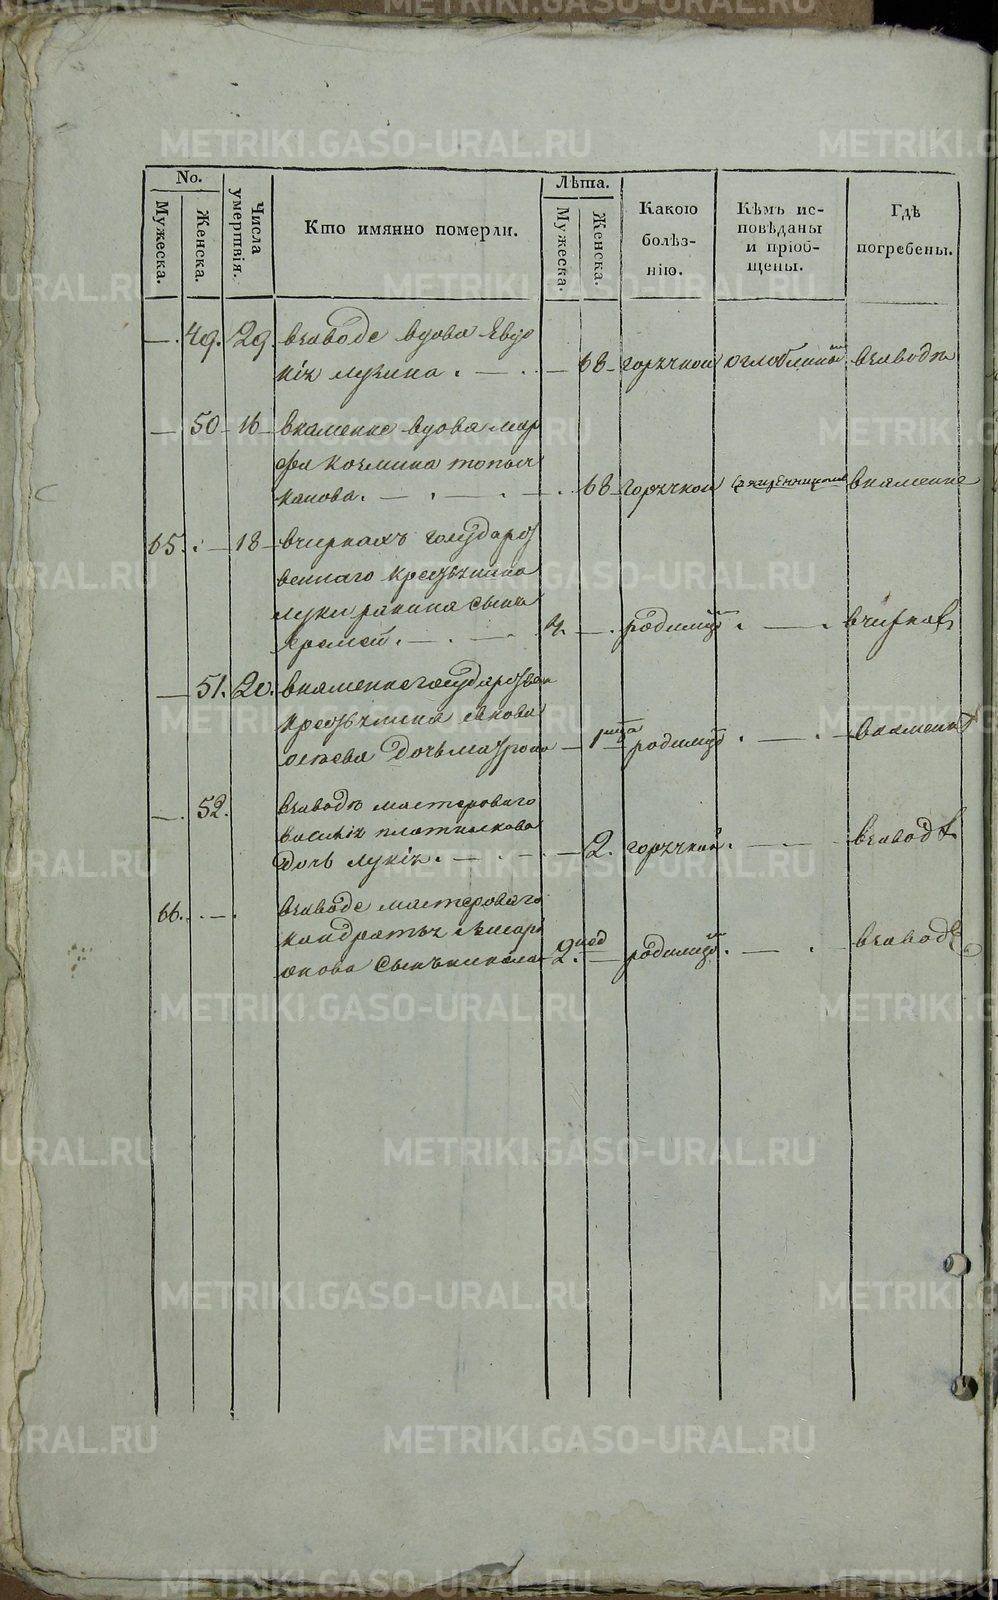 No.
Мужеска.
Женска.
Числа умертвія.
Кто имянно померли.
Лѣта.
Мужеска.
Женска.
Какою болѣзнію.
Кѣмъ исповѣданы и пріобщены.
Гдѣ погребены.
— 49. 29. взаводе вдова Евдо
кія лузина. — 68 горячкой оглоблинымъ взаводѣ
— 50 16 вкаменке вдова мар
фа козмина топыч
канова. — 68 горячкой вкаменке
65. — 18 вчиркахъ государс
веннаго крестьянина
луки сына
Еремей. — родимцо вчирках
— 51. 20. вкаменке государствен
крестьянина
дочь матрона — 1 родимцо вкаменке
— 52. взаводѣ мастероваго
василія плотникова
дочь лукія. — 2. горячкой. взаводѣ
66. — взаводе мастероваго
кандратья
онова сынъ никола 2. нед родимцо. взаводѣ
METRIKI.GASO-URAL.RU